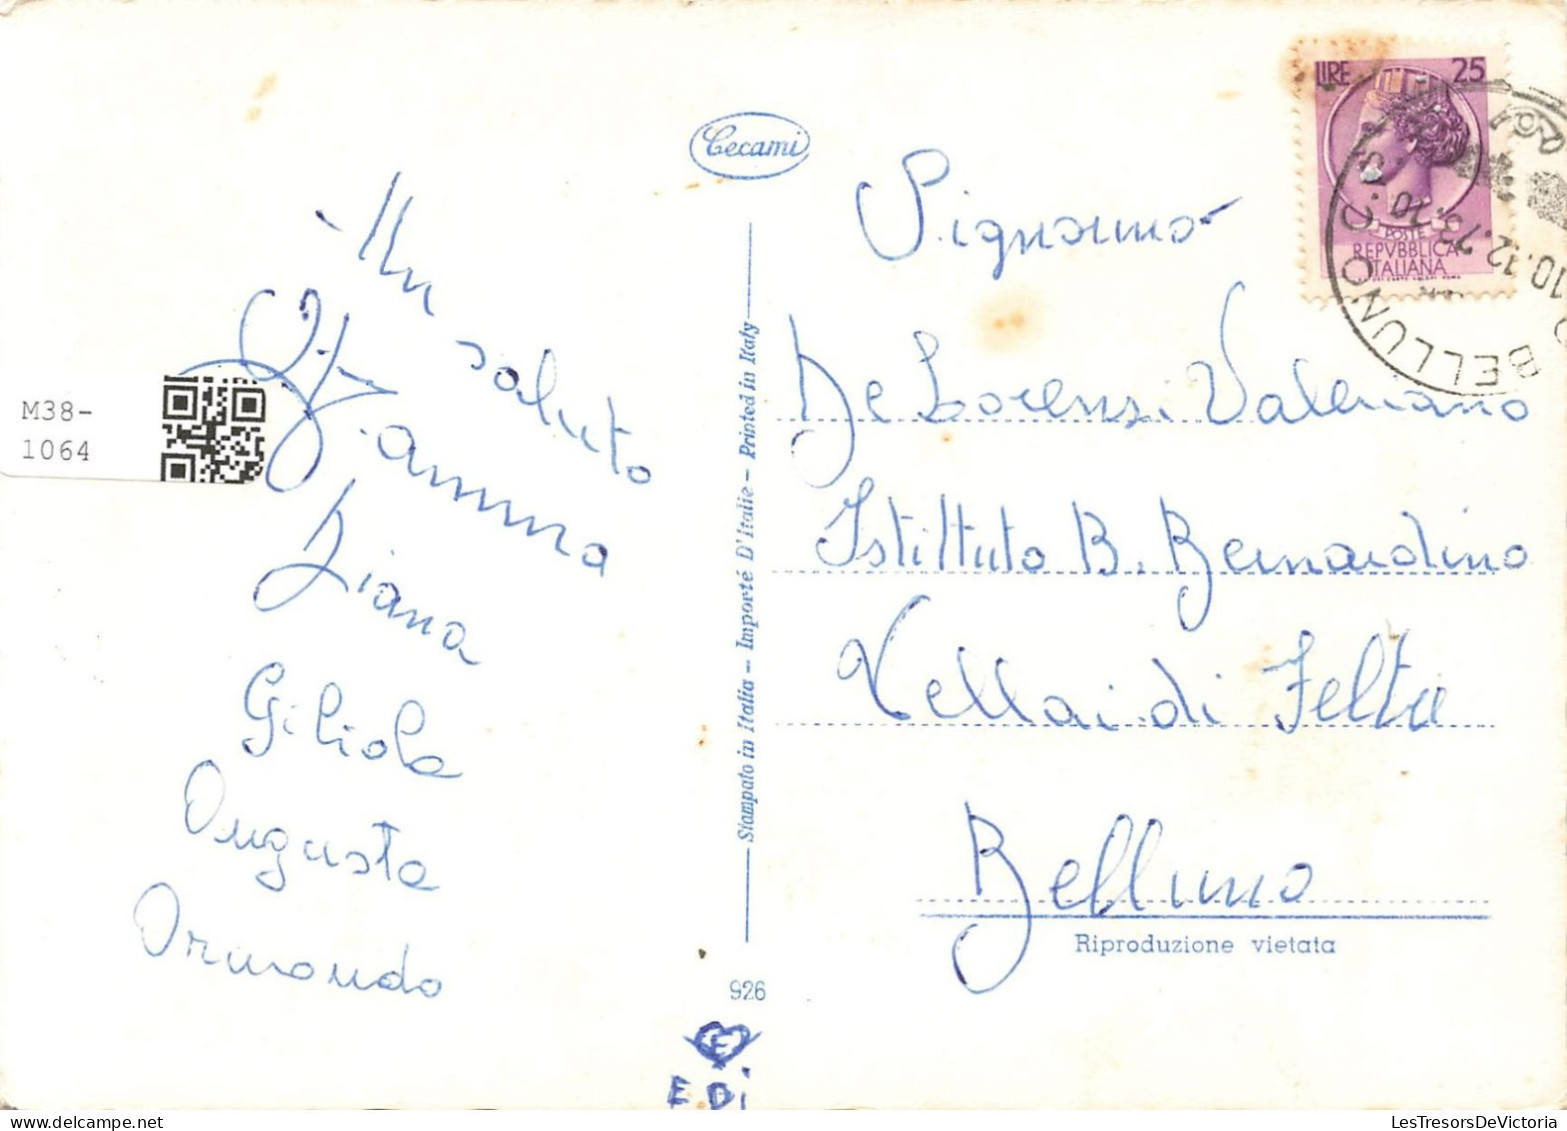 Cecami
Un saluto
Gianna
Diana
Giliola
Augusta
Ormondo
M38-
1064
Stampato in Italia - Importé D'Italie - Printed in Italy
926
E
EDi
LIRE 25
POSTE
REPVBBLICA
ITALIANA
BELLUNO C.P.
10.12.73
Signorino
De Lorenzi Valeriano
Istiltuto B. Bernardino
Vellai di Feltre
Belluno
Riproduzione vietata
LesTresorsDeVictoria